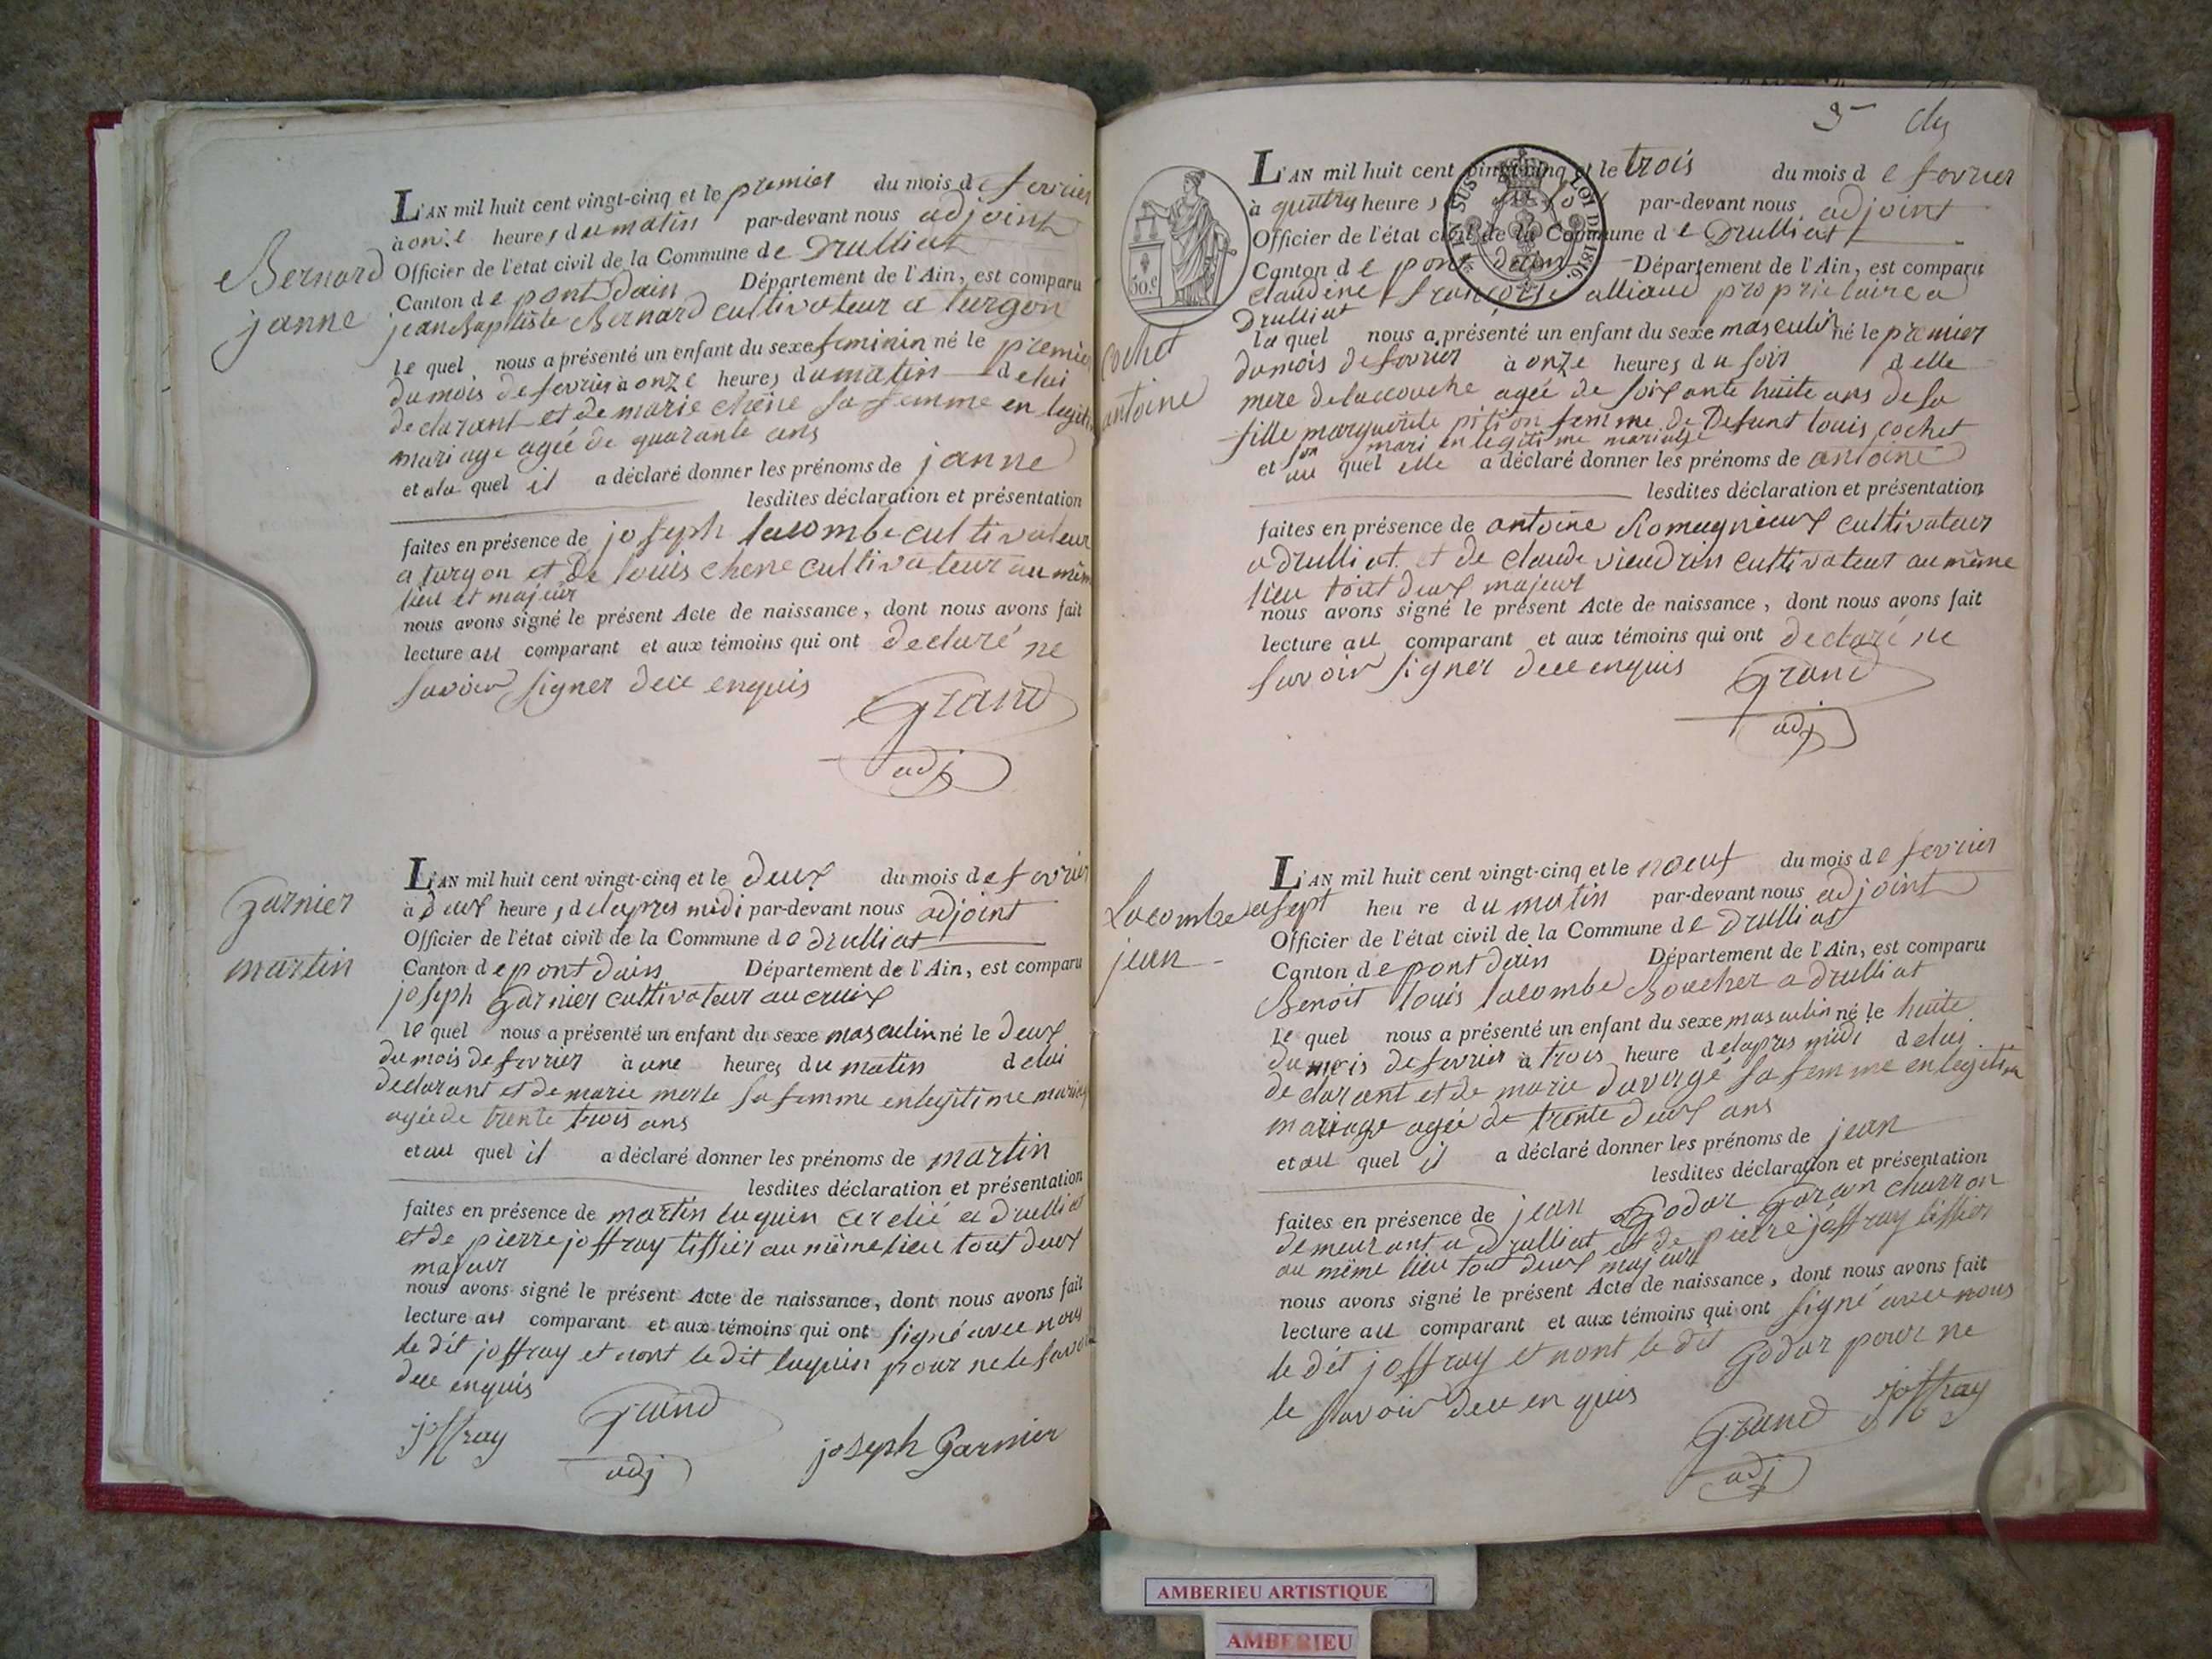 Bernard
janne
L'AN mil huit cent vingt-cinq et le premier du mois de fevrier
à onze heures du matin par-devant nous adjoint
Officier de l'etat civil de la Commune de Drulliat
Canton de pont Dain Département de l'Ain, est comparu
jean Baptiste Bernard cultivateur a turgon
le quel nous a présenté un enfant du sexe feminin né le premier
du mois de fevrier à onze heures du matin de lui
declarant et de marie chêne sa femme en legiti
mariage agée de quarante ans
et a la quel il a déclaré donner les prénoms de janne
lesdites déclaration et présentation
faites en présence de joseph lacombe cultivateur
a turgon et De louis chene cultivateur au mêm
lieu et majeur
nous avons signé le présent Acte de naissance, dont nous avons fait
lecture au comparant et aux témoins qui ont declaré ne
savoir signer dece enquis
Grand
adj
garnier
martin
L'AN mil huit cent vingt-cinq et le deux du mois de fevrier
à Deux heures delapres midi par-devant nous adjoint
Officier de l'état civil de la Commune de Drulliat
Canton de pont dain Département de l'Ain, est comparu
joseph garnier cultivateur au cruix
le quel nous a présenté un enfant du sexe masculin né le Deux
du mois de fevrier à une heures du matin de lui
declarant et de marie merle sa femme en legitime mariag
agée de trente trois ans
et au quel il a déclaré donner les prénoms de martin
lesdites déclaration et présentation
faites en présence de martin luquin a Drulliat
et de pierre joffray tissier au même lieu tout deux
majeur
nous avons signé le présent Acte de naissance, dont nous avons fait
lecture au comparant et aux témoins qui ont signé avec nous
le dit joffray et nont le dit luquin pour ne le savoir
dece enquis
joffray Grand joseph Garnier
adj
5
L'AN mil huit cent vingt-cinq et le trois du mois de fevrier
à quattres heures du par-devant nous adjoint
Officier de l'état civil de la Commune de Drulliat
Canton de pont dain Département de l'Ain, est comparu
claudine françoise alliaud proprietaire a
Drulliat
la quel nous a présenté un enfant du sexe masculin né le premier
du mois de fevrier à onze heures du soir delle
mere delaccouche agée de soixante huite ans de sa
fille marguerite pition femme de Defunt louis cochet
son mari en legitime mariage
et au quel elle a déclaré donner les prénoms de antoine
lesdites déclaration et présentation
faites en présence de antoine Romagnieux cultivateur
a drulliat et de claude vieudrin cultivateur au même
lieu tout deux majeur
nous avons signé le présent Acte de naissance, dont nous avons fait
lecture au comparant et aux témoins qui ont declaré ne
savoir signer dece enquis
Grand
adj
SUS LOI DE 1816.
50.c
cochet
antoine
Lacombe
jean
L'AN mil huit cent vingt-cinq et le noeuf du mois de fevrier
a sept heure du matin par-devant nous adjoint
Officier de l'état civil de la Commune de Drulliat
Canton de pont dain Département de l'Ain, est comparu
Benoit louis lacombe Boucher a drulliat
le quel nous a présenté un enfant du sexe masculin né le huite
du mois de fevrier à trois heure delapres midi de lui
declarant et de marie duvergé sa femme en legitim
mariage agée de trente deux ans
et au quel il a déclaré donner les prénoms de jean
lesdites déclaration et présentation
faites en présence de jean Godar charron
demeurant a drulliat et de pierre joffray tissier
au même lieu tout deux majeur
nous avons signé le présent Acte de naissance, dont nous avons fait
lecture au comparant et aux témoins qui ont signé avec nous
le dit joffray et nont le dit Godar pour ne
le savoir dece en quis
Grand joffray
adj
AMBERIEU ARTISTIQUE
AMBERIEU